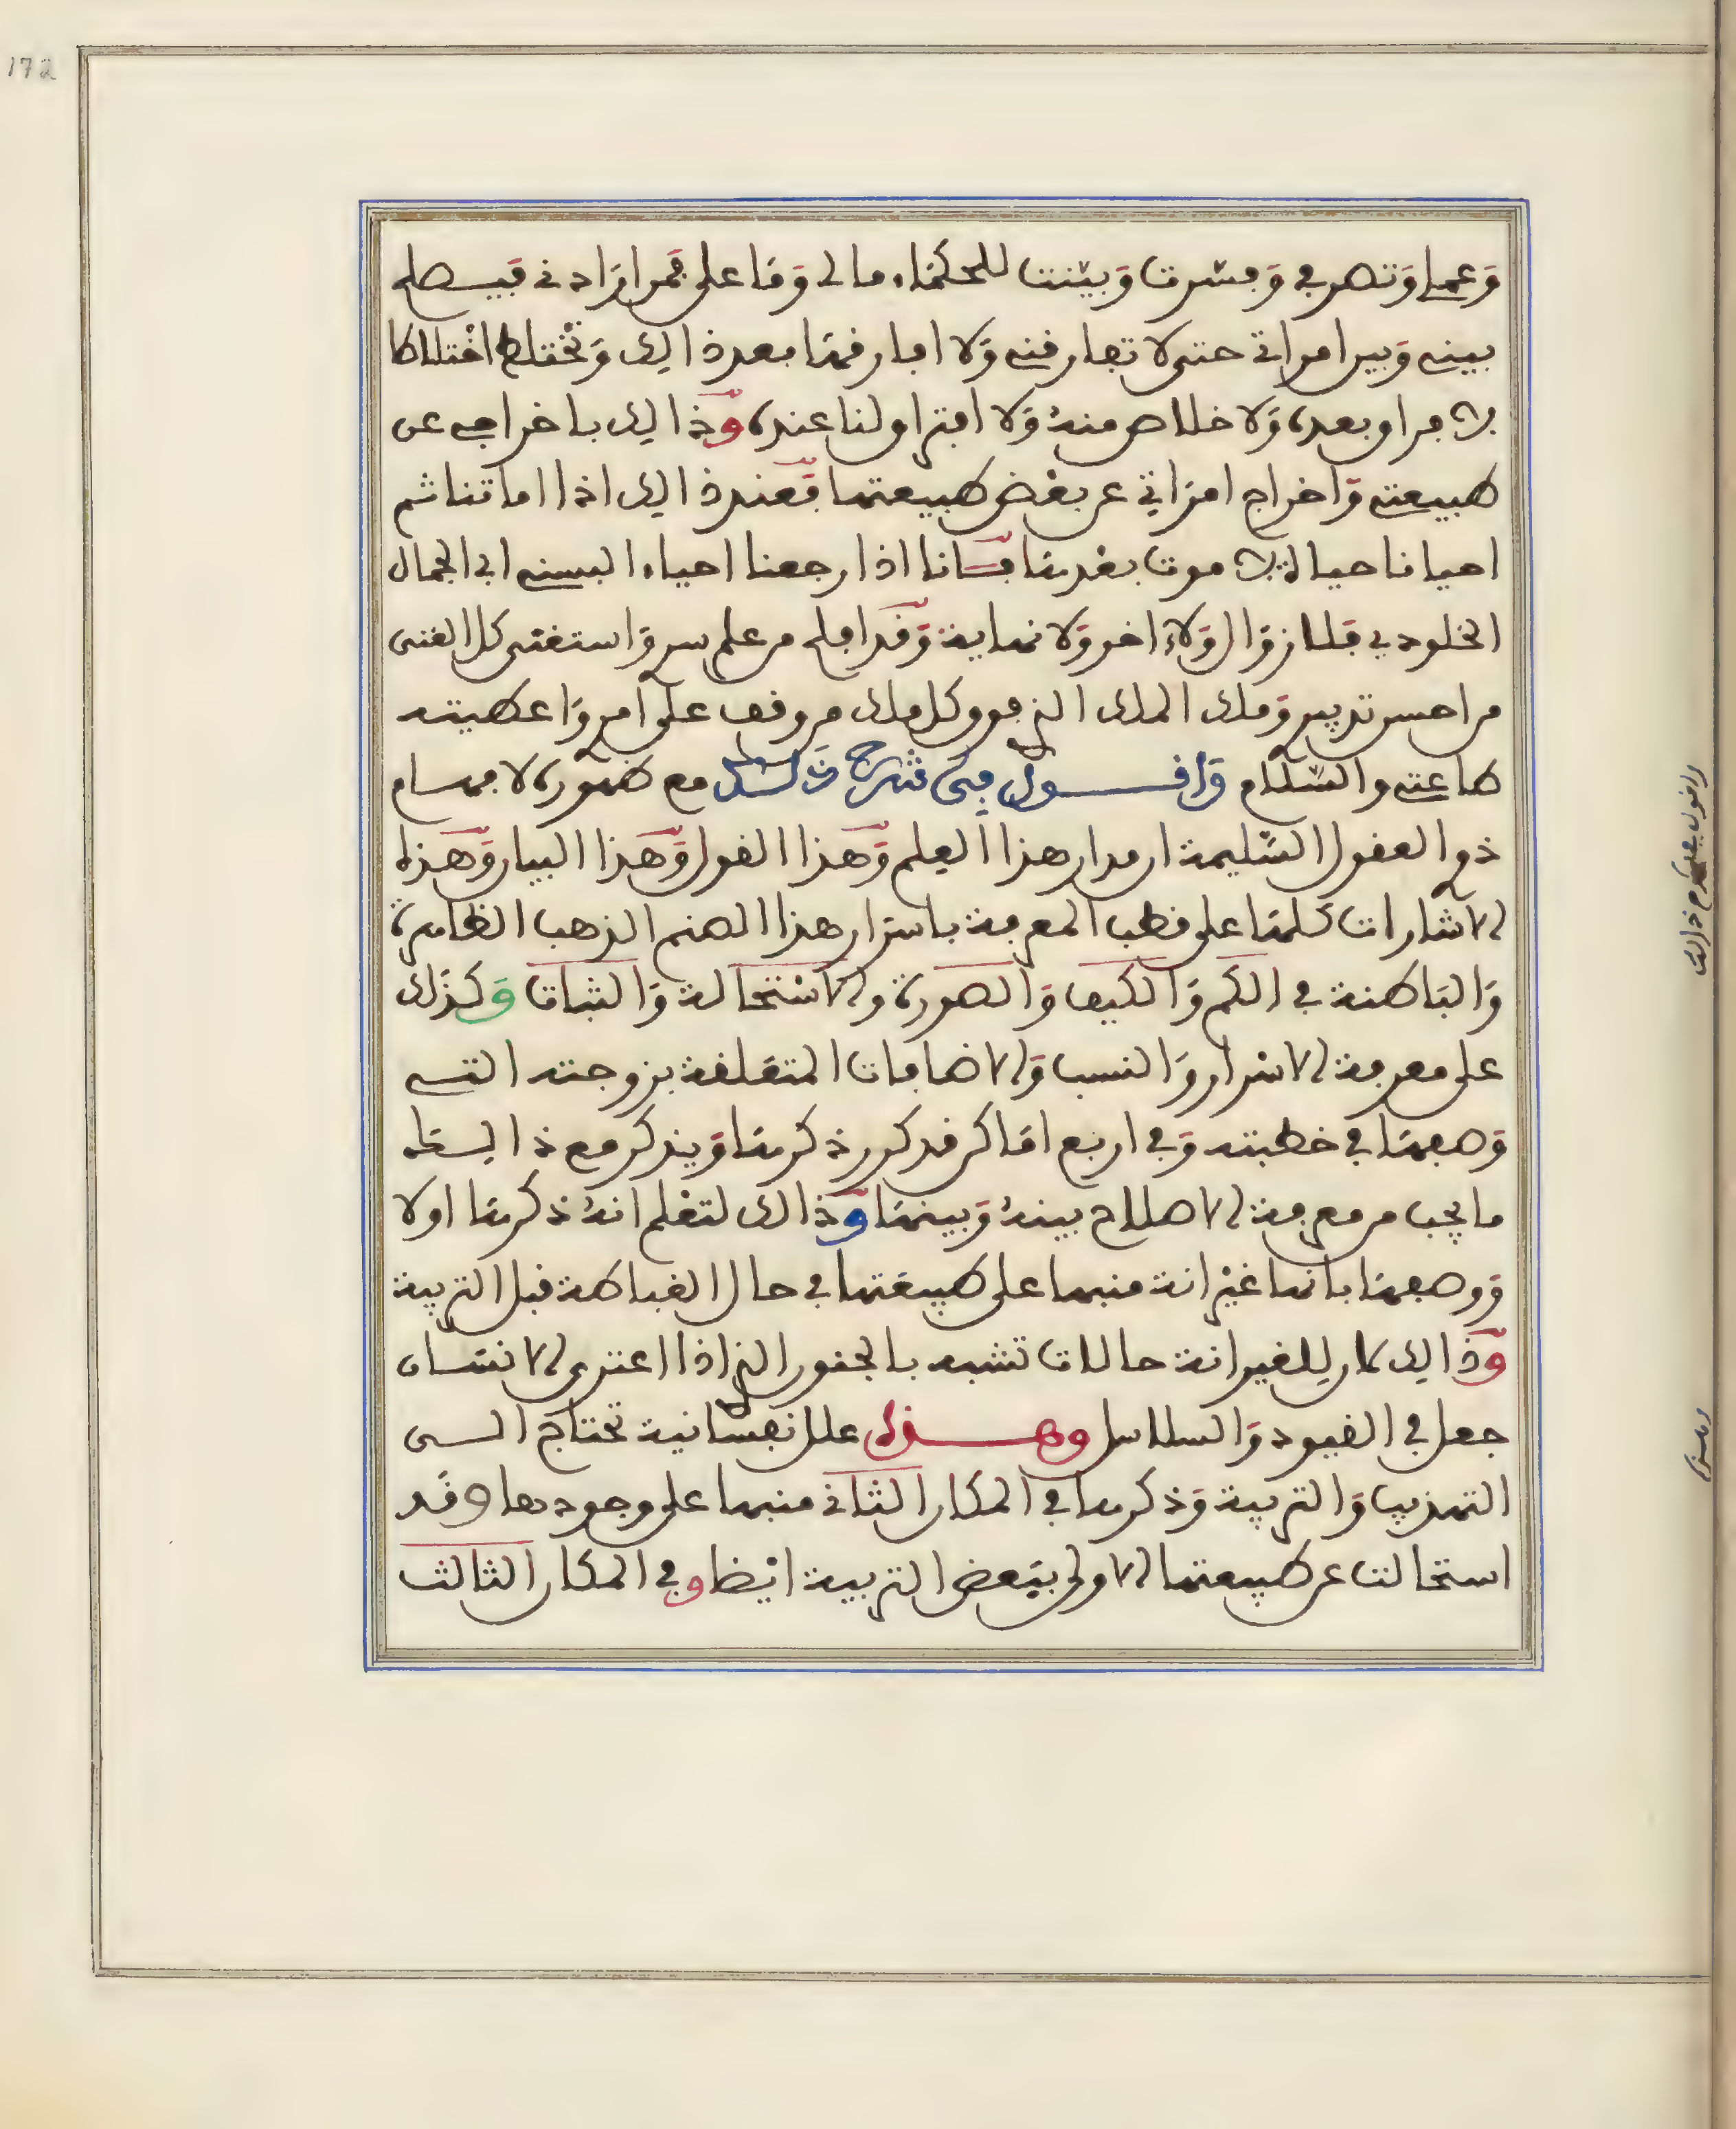 172
وعملي وتصرفي وفسرت وبينت للحكماء مالى وما على فمن ارادنى فيصلح
بينى وبين امراتى حتى لا تفارقنى ولا افارقها بعد ذالك ونختلط اختلاطا
لا فراق بعده ولا خلاص منه ولا افتراق لنا عنده وذالك باخراجى عن
طبيعتى واخراج امراتي عن بعض طبيعتها فعند ذالك اذا اماتنا ثم
احيانا حياة لا موت بعدها فاننا اذا رجعنا احياء البسنى ابى الجمال
الخلودي فلا زوال ولا اخر ولا نهاية وقد افلح من علم سرى واستغنى كل الغنى
من احسن تدبيرى وملك الملك الذي هو كل ملك من وقف على امرى واعطيته
طاعتى والسلام واقول في شرح ذلك مع ظهوره لافهام
ذوي العقول السليمة ان مدار هذا العلم وهذا القول وهذا البيان وهذه
الاشارات كلها على قطب المعرفة باسرار هذا الصنم الذهب الظاهرة
والباطنة في الكم والكيف والصورة والاستحالة والثبات وكذلك
على معرفة الاسرار والنسب والاضافات المتعلقة بزوجته التي
وصفها في خطبته وفي اربع اماكن قد كرر ذكرها ويذكر مع ذالك
ما يجب من معرفة الاصلاح بينه وبينها وذالك لتعلم انه ذكرها اولا
ووصفها بانها غيرانة منبها على طبيعتها في حال الغباطة قبل التربية
وذالك لان للغيرانة حالات تشبه بالجنون الذي اذا اعترى الانسان
جعل في القيود والسلاسل وهذه علل نفسانية تحتاج الى
التهذيب والتربية وذكرها في المكان الثاني منبها على وجودها وقد
استحالت عن طبيعتها الاولى ببعض التربية ايضا وفي المكان الثالث